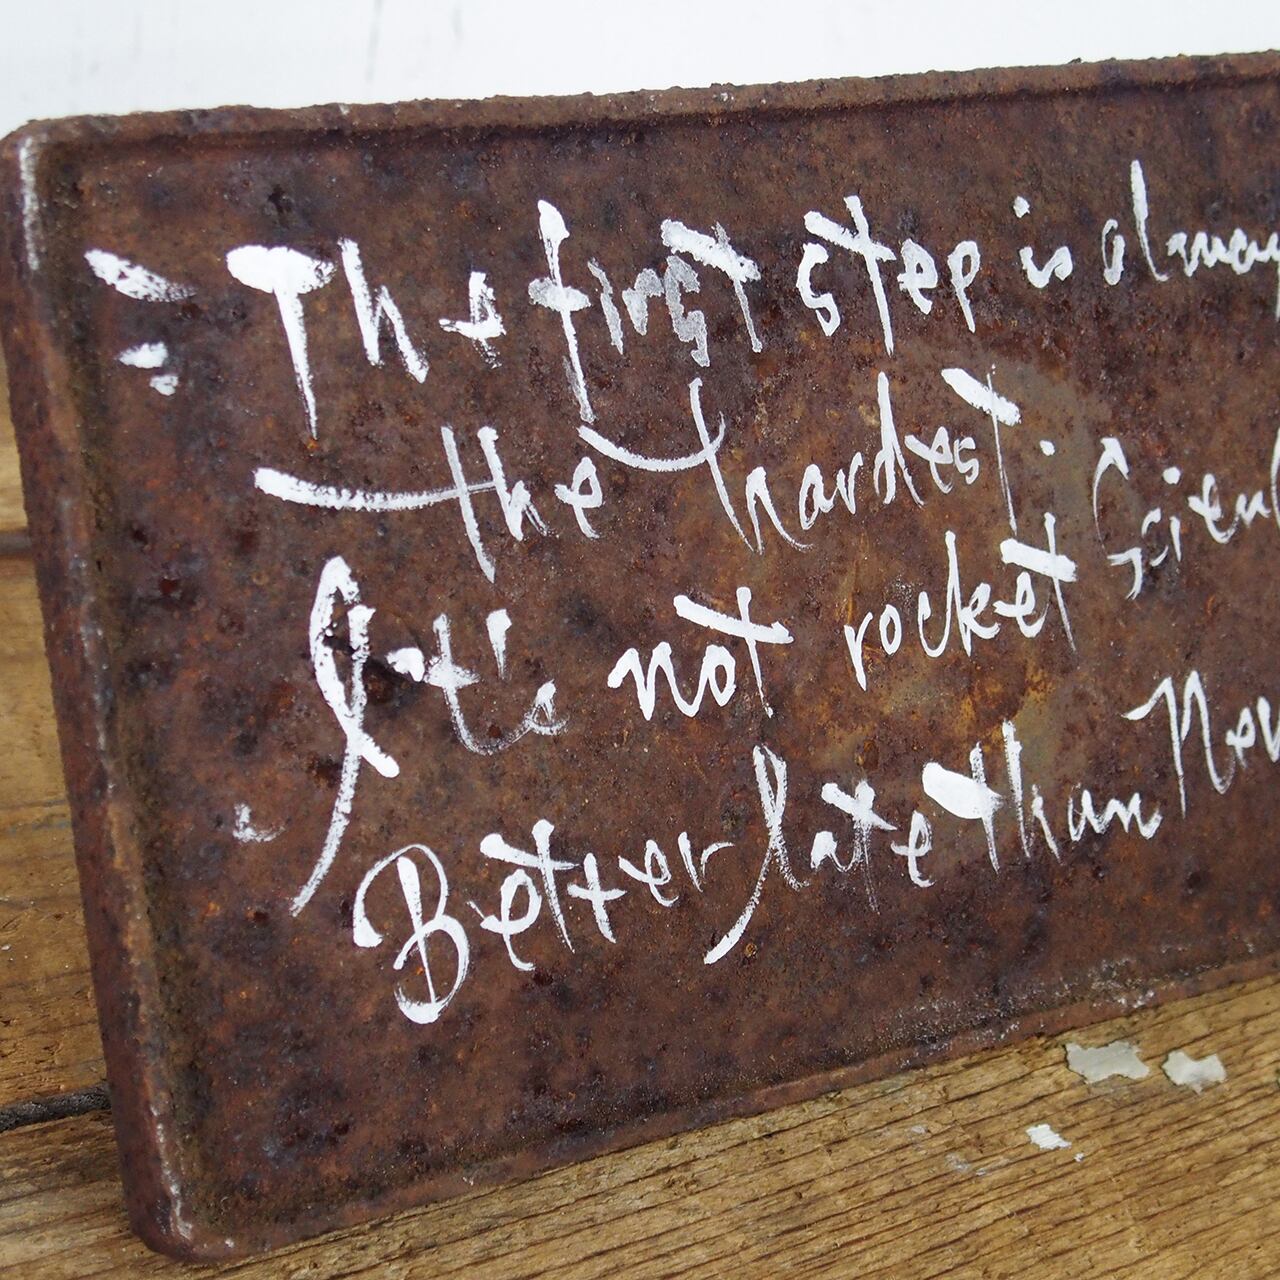 The first step is alway
the hardest. Scien
It's not rocket
Better late than Nev